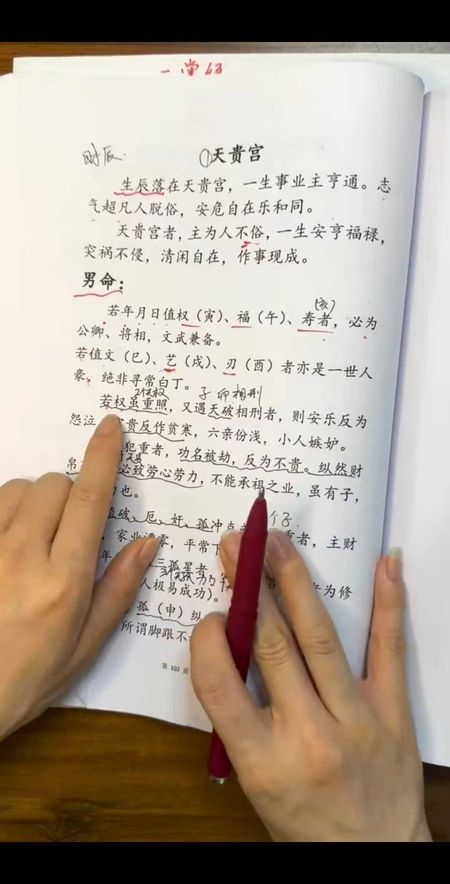 一掌
时辰
①天贵宫
生辰落在天贵宫，一生事业主亨通。志
气超凡人脱俗，安危自在乐和同。
天贵宫者，主为人不俗，一生安亨福禄，
突祸不侵，清闲自在，作事现成。
男命：
(亥)
若年月日值权（寅）、福（午）、寿者，必为
公卿、将相，文武兼备。
若值文（巳）、艺（戌）、刃（酉）者亦是一世人
豪，绝非寻常白丁。
子卯相刑
若权虽重照，又遇天破相刑者，则安乐反为
怨泣，贵反作贫寒，六亲份浅，小人嫉妒。
犯重者，功名被劫，反为不贵。纵然财
帛 必致劳心劳力，不能承祖之业，虽有子，
力也。
值破、厄、奸、孤冲克 重者，主财
，家业凋零，平常下
年 三孤星者
人极易成功）。 者为修
孤（申）纵
所谓脚跟不
第 102 页